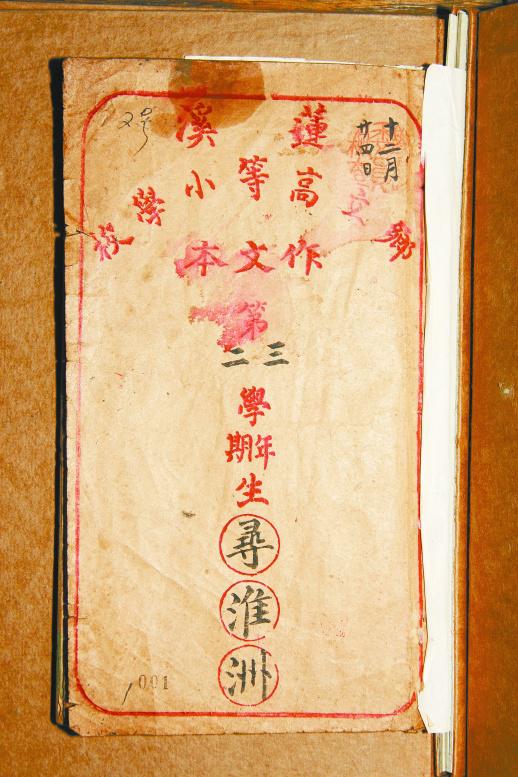 十二月
廿四日
2号
立蓮溪學校
高等小
作文本
第
三二
學
年期
生
尋淮洲
001